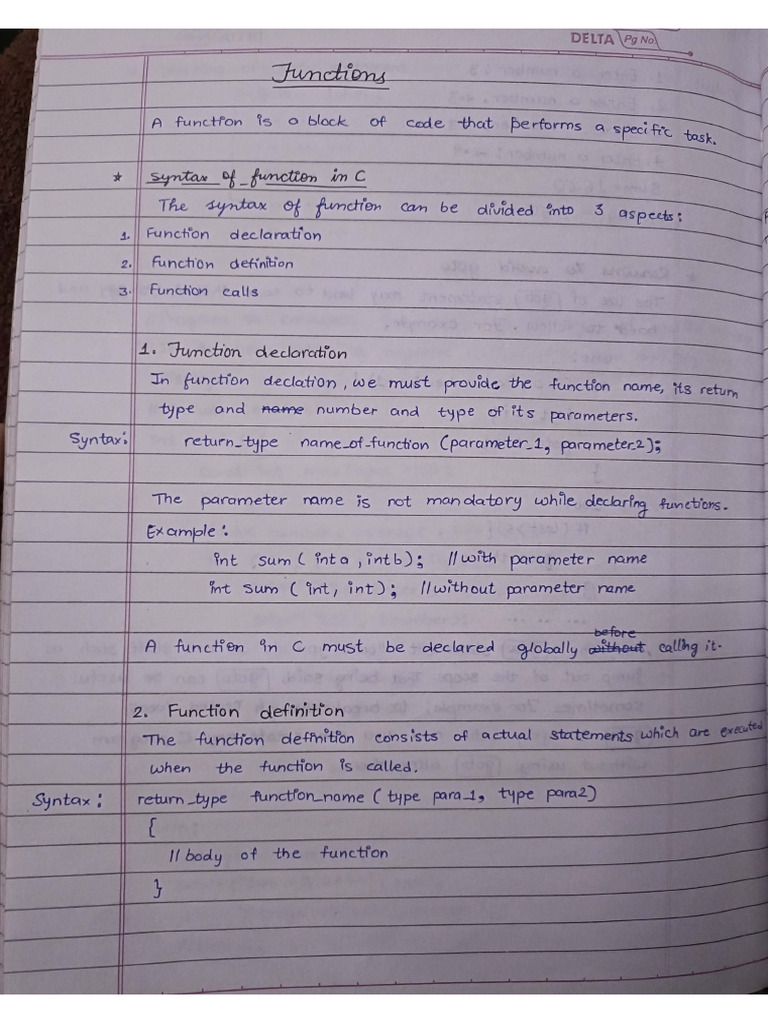 DELTA Pg No
Functions
A function is a block of code that performs a specific task.
* Syntax of function in C
The syntax of function can be divided into 3 aspects:
1. Function declaration
2. Function definition
3. Function calls
1. Function declaration
In function declation, we must provide the function name, its return
type and name number and type of its parameters.
Syntax: return_type name_of_function (parameter_1, parameter2);
The parameter name is not mandatory while declaring functions.
Example:
int sum ( int a , int b ); //with parameter name
int sum ( int, int ); //without parameter name
before
A function in C must be declared globally without calling it.
2. Function definition
The function definition consists of actual statements which are executed
when the function is called.
Syntax: return_type function_name ( type para_1, type para2)
{
//body of the function
}